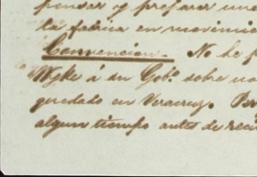 pensar y preparar una
la fabrica en movimie
Convencion. No he
Wyke á su Gobº. sobre
quedado en Veracruz.
algun tiempo antes de reci